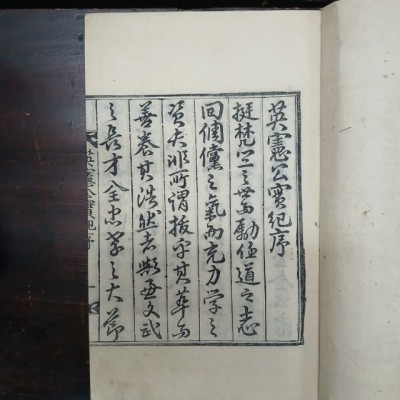 英憲公實紀序
挺梵㒰之世而勵極道之志
回倜儻之氣而充力学之
資夫非所謂拔乎其萃而
善養其浩然者歟無文武
之長才全忠孝之大節
英憲公實紀序